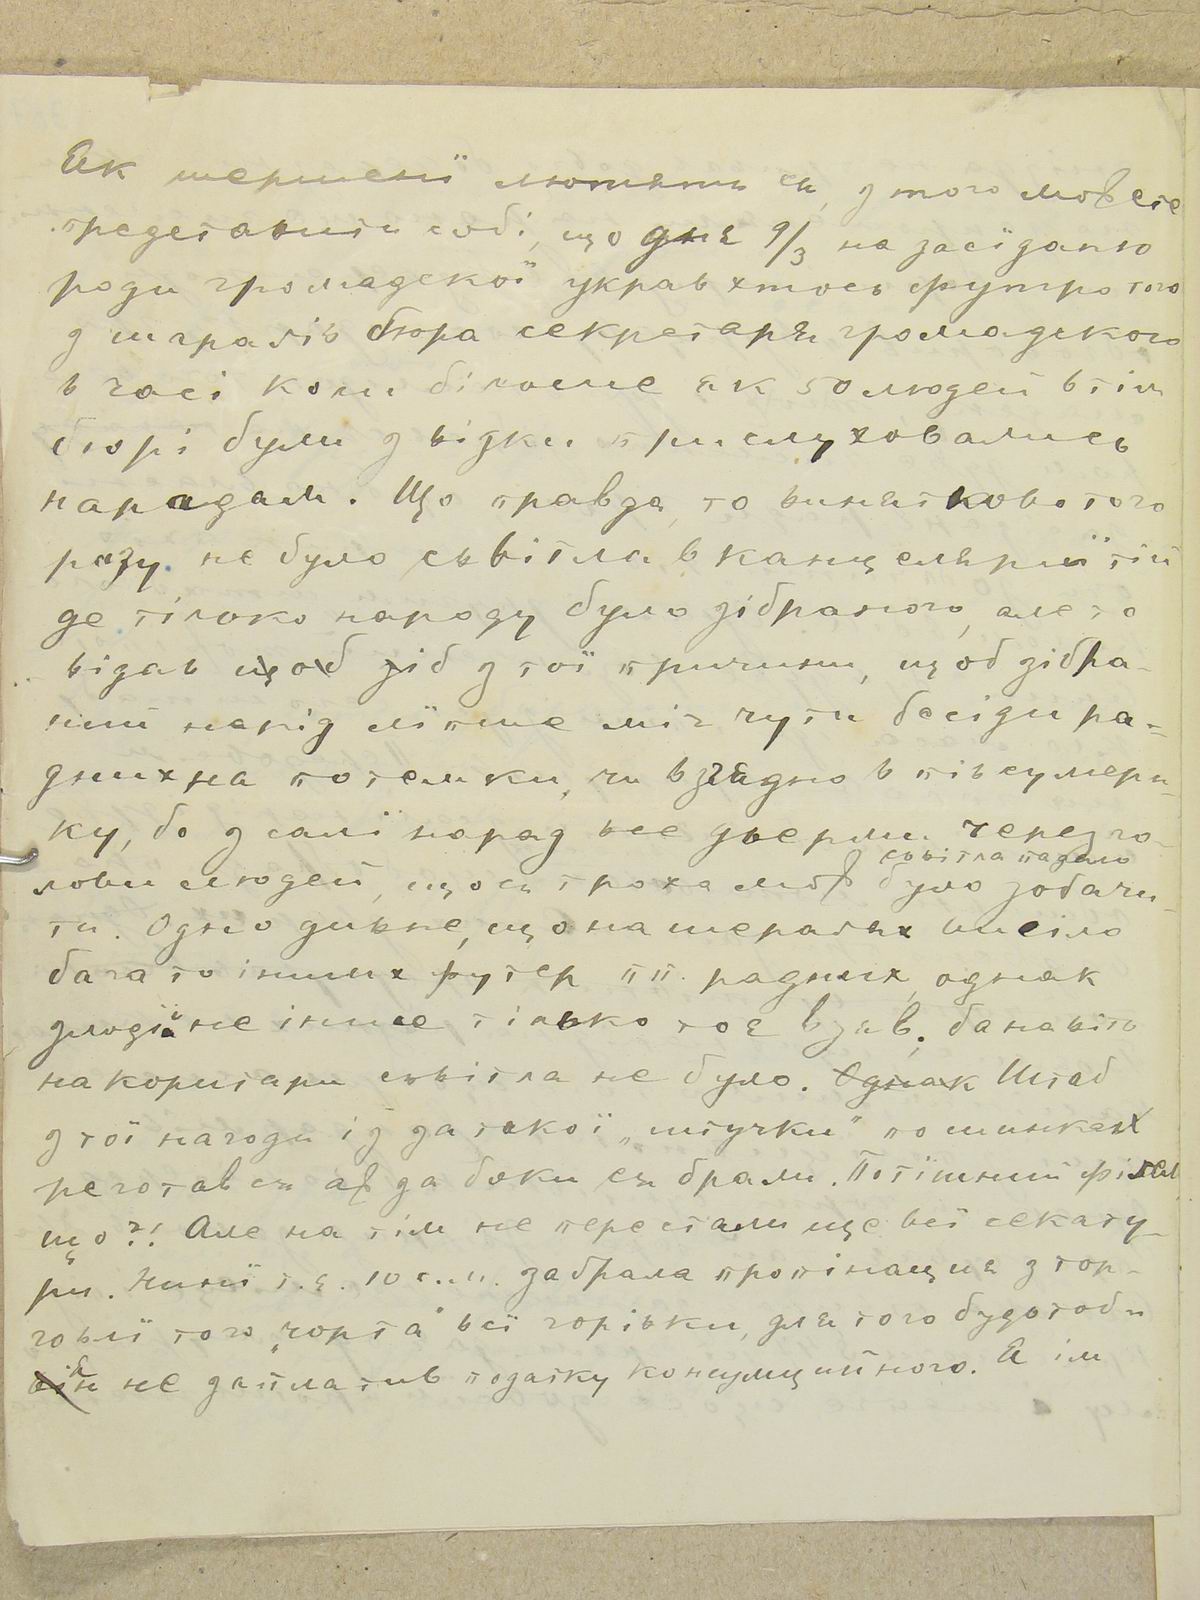 Як шершенї лютять ся, з того можете
представити собі, що дня 9/3 на засїданю
ради громадскої украв хтось футро того
з шараґів бюра секретаря громадского
в часі коли більше як 50 людей в тім
бюрі були з відки прислуховались
нарадам. Що правда, то винятково того
разу не було сьвітла в канцелярії тій
де тілько народу було зібраного, але то
відав щоб зіб з тої причини, щоб зібра-
ний нарід лїпше міг чути бесіди ра-
дних на потемки, чи взгядно в півсумерк-
ку, бо з салї нарад все дверми через го-
сьвітла падало
лови людей, що ся троха мож було зобачи-
ти. Одно дивне, що на шараґах висіло
багато інших футер пп. радних, однак
злодїй не інше тілько тоє взяв, ба навіть
на коритари сьвітла не було. Однак Штаб
з тої нагоди і з за такої „штучки" по шинках
реготав ся аж за боки ся брали. Потїшний
що?! Але на тім не перестали ще всї секату-
ри. Нинї т.є. 10 с.м. забрала пропінация з тор-
говлї того „чорта" всї горівки, для того будьтоби
він я не заплатив податку консумцийного. Я їм